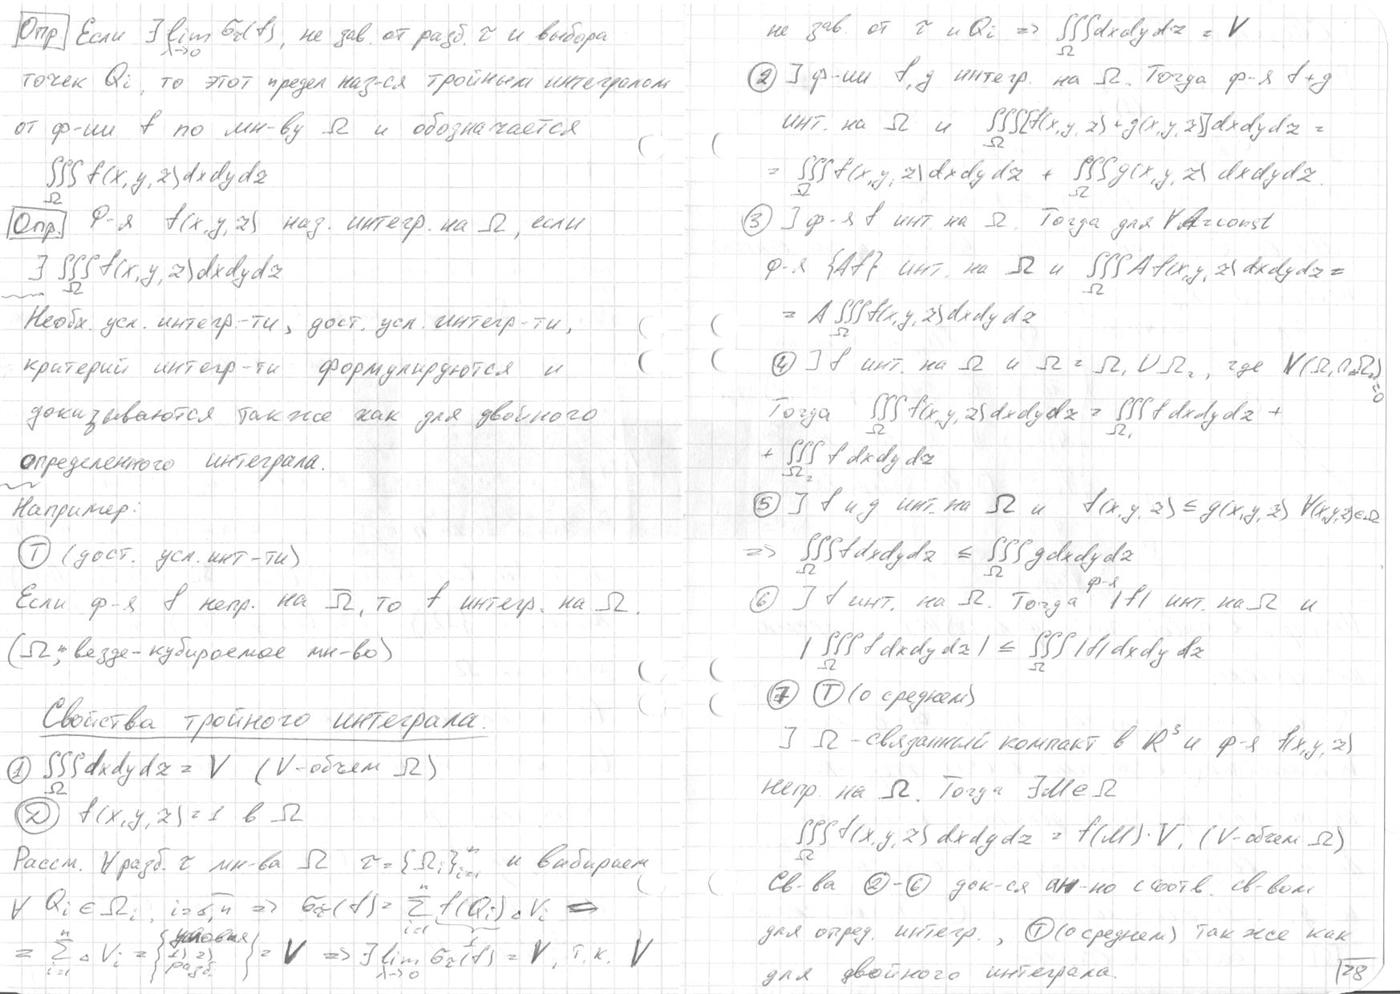 Опр Если ∃ lim σ_τ(f), не зав. от разб. τ и выбора
λ→0
точек Qi, то этот предел наз-ся тройным интегралом
от ф-ии f по мн-ву Ω и обозначается
∭f(x,y,z)dxdydz
Ω
Опр. Ф-я f(x,y,z) наз. интегр. на Ω, если
∃ ∭f(x,y,z)dxdydz
Ω
Необх. усл. интегр-ти, дост. усл. интегр-ти,
критерий интегр-ти формулируются и
доказываются также как для двойного
определенного интеграла.
Например:
Ⓣ (дост. усл. инт-ти)
Если ф-я f непр. на Ω, то f интегр. на Ω.
(Ω - везде - кубируемое мн-во)
Свойства тройного интеграла.
① ∭dxdydz = V (V-объем Ω)
Ω
Ⓓ f(x,y,z)=1 в Ω
Рассм. ∀ разб. τ мн-ва Ω τ={Ωi}ⁿi=1 и выбираем
∀ Qi∈Ωi, i=1,n => σ_τ(f)=∑ⁿi=1 f(Qi)ΔVi =
= ∑ⁿi=1 ΔVi = {условия 1) 2) разб.} = V => ∃ lim σ_τ(f) = V, т.к. V
λ→0
не зав. от τ и Qi => ∭dxdydz = V
Ω
② ∃ ф-ии f, g интегр. на Ω. Тогда ф-я f+g
инт. на Ω и ∭[f(x,y,z)+g(x,y,z)]dxdydz =
Ω
= ∭f(x,y,z)dxdydz + ∭g(x,y,z)dxdydz.
Ω Ω
③ ∃ ф-я f инт. на Ω. Тогда для ∀ A=const
ф-я {Af} инт. на Ω и ∭Af(x,y,z)dxdydz =
Ω
= A∭f(x,y,z)dxdydz
Ω
④ ∃ f инт. на Ω и Ω = Ω₁∪Ω₂, где V(Ω₁∩Ω₂)=0
Тогда ∭f(x,y,z)dxdydz = ∭fdxdydz +
Ω Ω₁
+ ∭fdxdydz
Ω₂
⑤ ∃ f и g инт. на Ω и f(x,y,z) ≤ g(x,y,z) ∀(x,y,z)∈Ω
=> ∭fdxdydz ≤ ∭gdxdydz
Ω Ω
⑥ ∃ f инт. на Ω. Тогда ф-я |f| инт. на Ω и
|∭fdxdydz| ≤ ∭|f|dxdydz
Ω Ω
⑦ Ⓣ (о среднем)
∃ Ω - связанный компакт в R³ и ф-я f(x,y,z)
непр. на Ω. Тогда ∃M∈Ω
∭f(x,y,z)dxdydz = f(M)·V, (V-объем Ω)
Ω
Св-ва ②-⑥ док-ся ан-но соотв. св-вам
для опред. интегр., Ⓣ (о среднем) также как
для двойного интеграла.
28